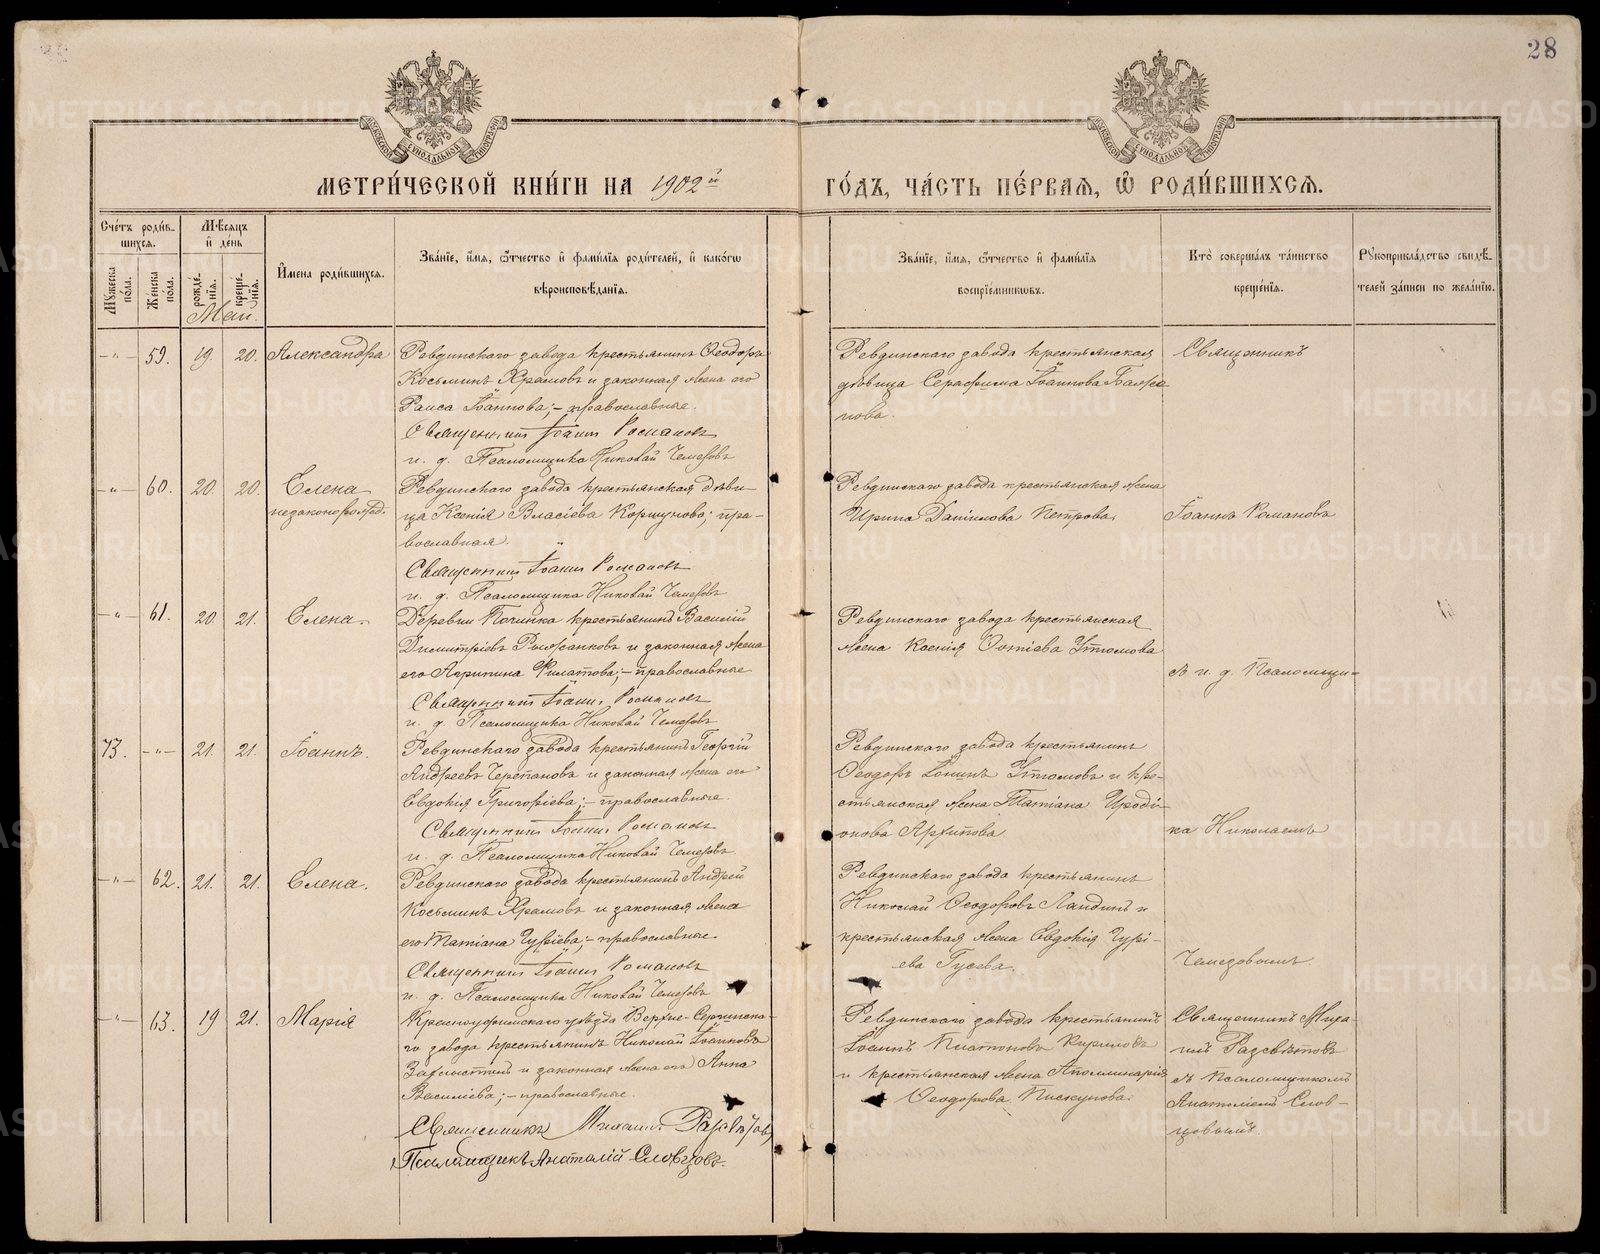 28
МОСКОВСКОЙ СѴНОДАЛЬНОЙ ТИПОГРАФІИ
МОСКОВСКОЙ СѴНОДАЛЬНОЙ ТИПОГРАФІИ
МЕТРИ́ЧЕСКОЙ КНИ́ГИ НА 1902й
ГО́ДЪ, ЧА́СТЬ ПЕ́РВАѦ, Ѽ РОДИ́ВШИХСѦ.
Сче́тъ роди́в-
шихсѧ.
Мѣ́сѧцъ
и҆ де́нь
Мꙋ́жеска
по́ла.
Же́нска
по́ла.
рожде́-
нїѧ.
креще́-
нїѧ.
И҆мена̀ роди́вшихсѧ.
Зва́нїе, и҆́мѧ, ѻ҆́тчество и҆ фами́лїѧ роди́телей, и҆ како́гѡ
вѣроисповѣ́данїѧ.
Зва́нїе, и҆́мѧ, ѻ҆́тчество и҆ фами́лїѧ
воспрїе́мникѡвъ.
Кто̀ соверша́лъ та́инство
креще́нїѧ.
Рꙋкоприкла́дство свидѣ́-
телей за́писи по жела́нїю.
Май.
-„- 59. 19 20. Александра
Ревдинскаго завода крестьянинъ Ѳеодоръ
Косьминъ Храмовъ и законная жена его
Раиса Іоаннова; - православные.
Священникъ Іоаннъ Романовъ
и. д. Псаломщика Николай Чемезовъ
Ревдинскаго завода крестьянская
дѣвица Серафима Іоаннова Баже-
нова.
Священникъ
-„- 60. 20. 20. Елена
незаконорожд.
Ревдинскаго завода крестьянская дѣви-
ца Ксенія Власіева Коршунова; пра-
вославная.
Священникъ Іоаннъ Романовъ
и. д. Псаломщика Николай Чемезовъ
Ревдинскаго завода крестьянская жена
Ирина Даніилова Петрова.
Іоаннъ Романовъ
-„- 61. 20 21. Елена.
Деревни Починка крестьянинъ Василій
Димитріевъ и законная жена
его Агрипина Филатова; - православные
Священникъ Іоаннъ Романовъ
и. д. Псаломщика Николай Чемезовъ
Ревдинскаго завода крестьянская
жена Ксенія Фотіева Утюмова
съ и. д. Псаломщи-
73. -„- 21. 21. Іоаннъ.
Ревдинскаго завода крестьянинъ Георгій
Андреевъ Черепановъ и законная жена его
Евдокія Григоріева; - православные.
Священникъ Іоаннъ Романовъ
и. д. Псаломщика Николай Чемезовъ
Ревдинскаго завода крестьянинъ
Ѳеодоръ Іонинъ Утюмовъ и кре-
стьянская жена Татіана Ироді-
онова Архипова
ка Николаемъ
-„- 62. 21. 21. Елена.
Ревдинскаго завода крестьянинъ Андрей
Косьминъ Храмовъ и законная жена
его Татіана Гуріева; - православные
Священникъ Іоаннъ Романовъ
и. д. Псаломщика Николай Чемезовъ
Ревдинскаго завода крестьянинъ
Николай Ѳеодоровъ Ландинъ и
крестьянская жена Евдокія Гурі-
ева Гусева.
Чемезовымъ.
-„- 63. 19 21. Марія
Красноуфимскаго уѣзда Верхне-Сергинска-
го завода крестьянинъ Николай Іоанновъ
и законная жена его Анна
Василіева; - православные.
Священникъ Михаилъ Разсвѣтовъ
Псаломщикъ Анатолій Словцовъ.
Ревдинскаго завода крестьянинъ
Іоаннъ Платоновъ Кириловъ
и крестьянская жена Аполлинарія
Ѳеодорова Пискунова.
Священникъ Миха-
илъ Разсвѣтовъ
съ Псаломщикомъ
Анатоліемъ Слов-
цовымъ.
METRIKI.GASO-URAL.RU